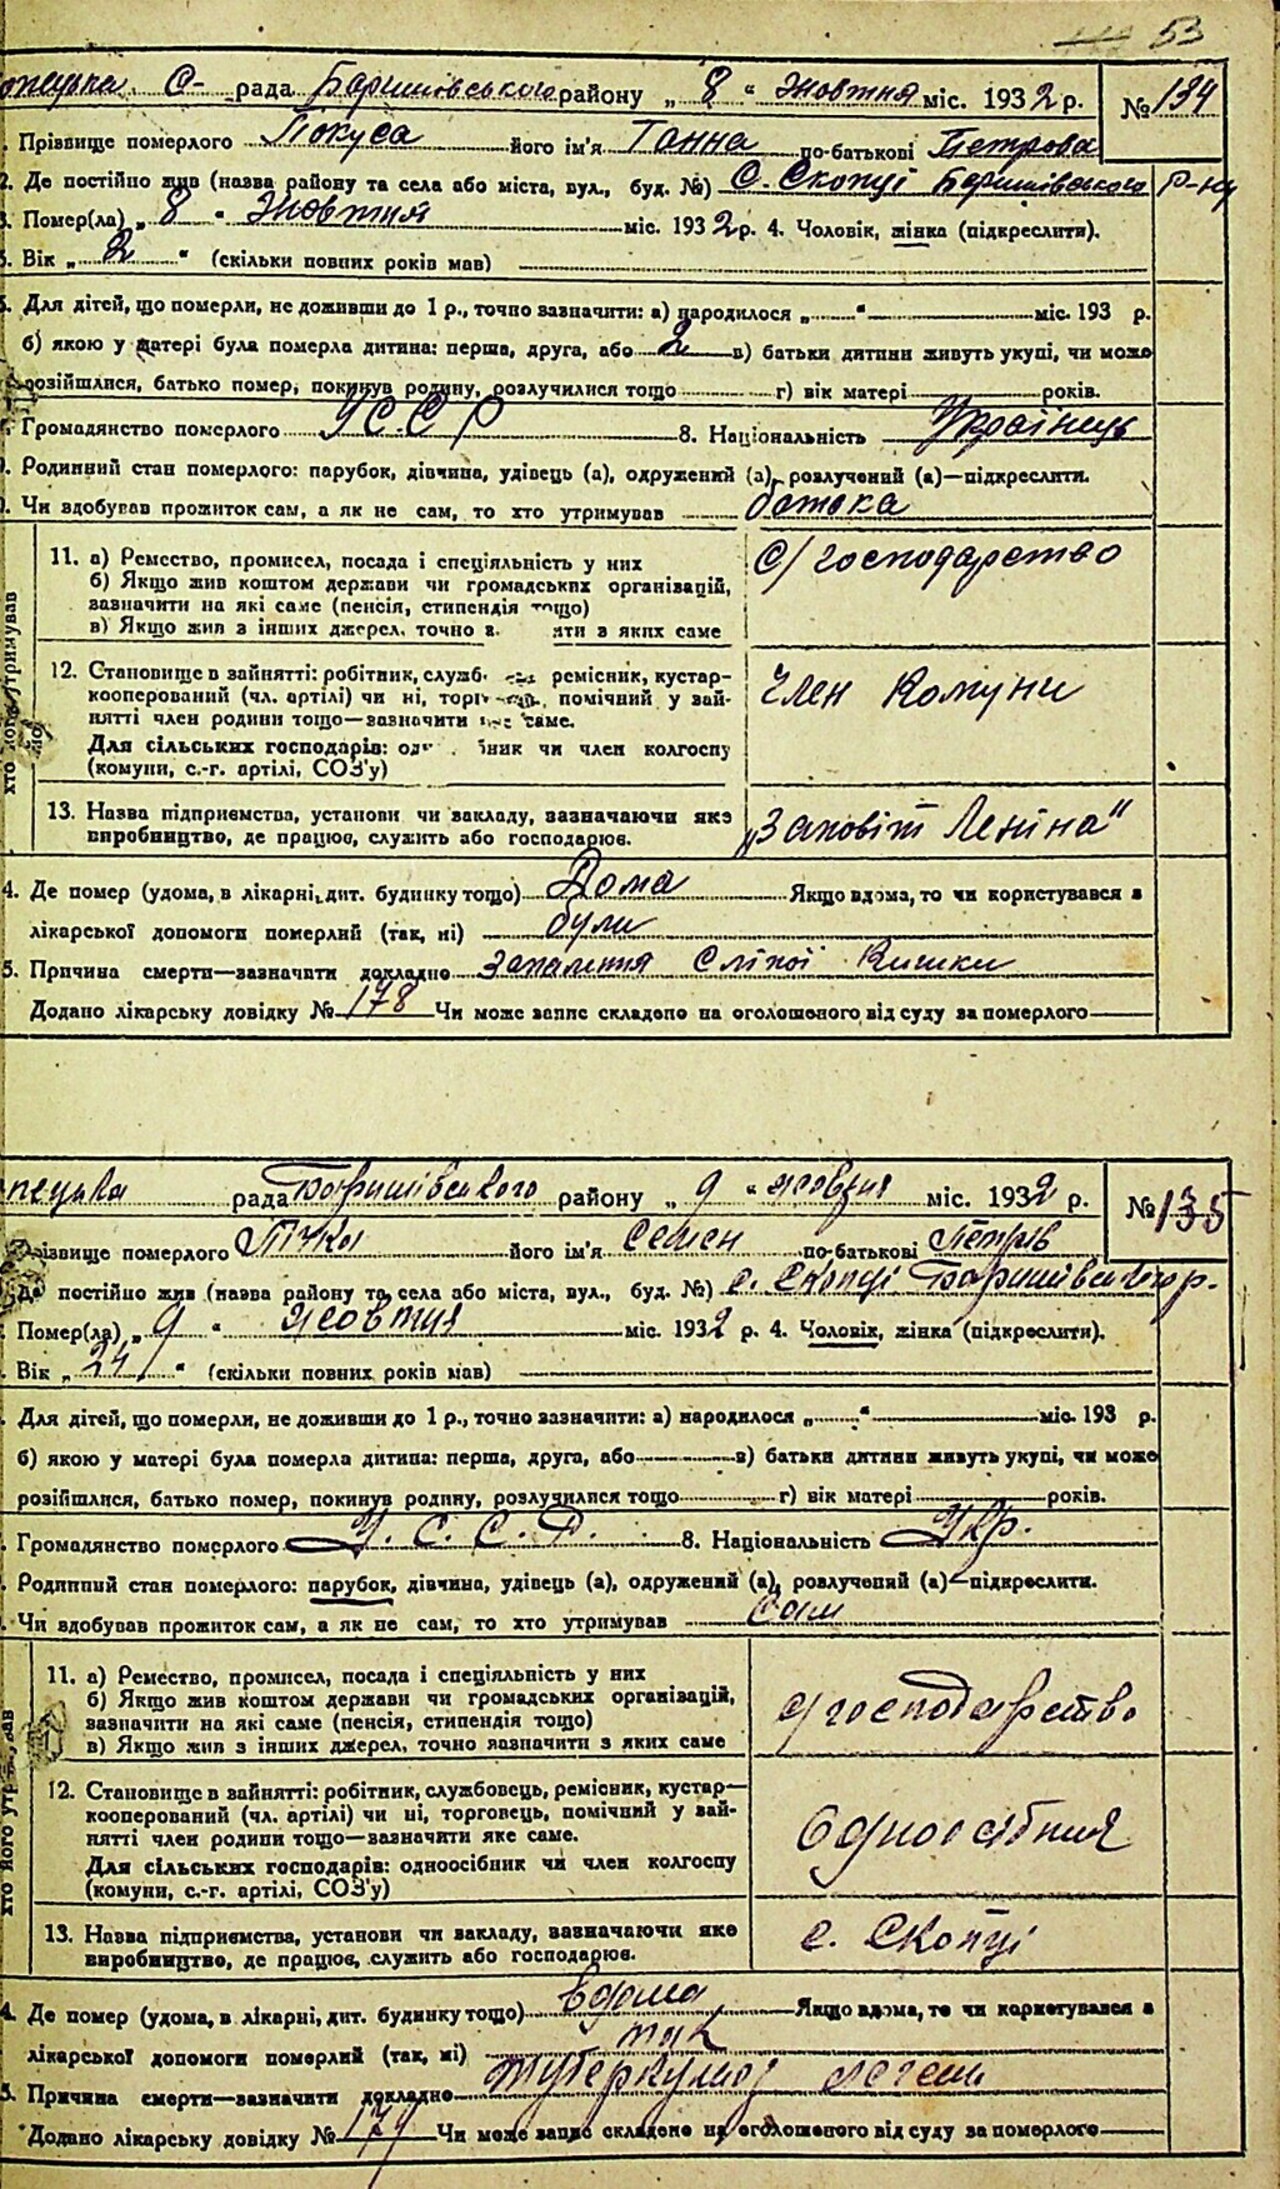 53
С- рада Баришівського району „ 8 “ Жовтня міс. 1932 р. № 134
Прізвище померлого Покуса його ім'я Ганна по-батькові Петрова
2. Де постійно жив (назва району та села або міста, вул., буд. №) С. Скопці Баришівського р-ну
3. Помер(ла) „ 8 “ Жовтня міс. 1932 р. 4. Чоловік, жінка (підкреслити).
5. Вік „ 2 “ (скільки повних років мав)
6. Для дітей, що померли, не доживши до 1 р., точно зазначити: а) народилося „ “ міс. 193 р.
б) якою у матері була померла дитина: перша, друга, або 2 в) батьки дитини живуть укупі, чи може
розійшлися, батько помер, покинув родину, розлучилися тощо г) вік матері років.
7. Громадянство померлого УССР 8. Національність Українець
9. Родинний стан померлого: парубок, дівчина, удівець (а), одружений (а), розлучений (а)—підкреслити.
. Чи здобував прожиток сам, а як не сам, то хто утримував батька
11. а) Ремество, промисел, посада і спеціяльність у них С/господарство
б) Якщо жив коштом держави чи громадських організацій,
зазначити на які саме (пенсія, стипендія тощо)
в) Якщо жив з інших джерел, точно з яких саме
12. Становище в зайнятті: робітник, служб ремісник, кустар-
кооперований (чл. артілі) чи ні, торг помічний у зай- Член Комуни
нятті член родини тощо—зазначити саме.
Для сільських господарів: од бник чи член колгоспу
(комуни, с.-г. артілі, СОЗ'у)
13. Назва підприємства, установи чи закладу, зазначаючи яке „Заповіт Леніна“
виробництво, де працює, служить або господарює.
4. Де помер (удома, в лікарні, дит. будинку тощо) Дома Якщо вдома, то чи користувався з
лікарської допомоги померлий (так, ні) були
5. Причина смерти—зазначити докладно Запалення Сліпої Кишки
Додано лікарську довідку № 178 Чи може запис складено на оголошеного від суду за померлого
пецька рада Баришівського району „ 9 “ жовтня міс. 1932 р. № 135
різвище померлого Пічка його ім'я Семен по-батькові Петрів
Де постійно жив (назва району та села або міста, вул., буд. №) с. Скопці Баришівського р.
Помер(ла) „ 9 “ Жовтня міс. 1932 р. 4. Чоловік, жінка (підкреслити).
Вік „ 24 “ (скільки повних років мав)
Для дітей, що померли, не доживши до 1 р., точно зазначити: а) народилося „ “ міс. 193 р.
б) якою у матері була померла дитина: перша, друга, або в) батьки дитини живуть укупі, чи може
розійшлися, батько помер, покинув родину, розлучилися тощо г) вік матері років.
Громадянство померлого У. С. С. Р. 8. Національність Укр.
Родинний стан померлого: парубок, дівчина, удівець (а), одружений (а), розлучений (а)—підкреслити.
Чи здобував прожиток сам, а як не сам, то хто утримував Сам
11. а) Ремество, промисел, посада і спеціяльність у них с/господарство
б) Якщо жив коштом держави чи громадських організацій,
зазначити на які саме (пенсія, стипендія тощо)
в) Якщо жив з інших джерел, точно зазначити з яких саме
12. Становище в зайнятті: робітник, службовець, ремісник, кустар—
кооперований (чл. артілі) чи ні, торговець, помічний у зай-
нятті член родини тощо—зазначити яке саме. Одноосібния
Для сільських господарів: одноосібник чи член колгоспу
(комуни, с.-г. артілі, СОЗ'у)
13. Назва підприємства, установи чи закладу, зазначаючи яке с. Скопці
виробництво, де працює, служить або господарює.
4. Де помер (удома, в лікарні, дит. будинку тощо) вдома Якщо вдома, то чи користувався з
лікарської допомоги померлий (так, ні) так
5. Причина смерти—зазначити докладно туберкульоз легень
Додано лікарську довідку № 179 Чи може запис складено на оголошеного від суду за померлого